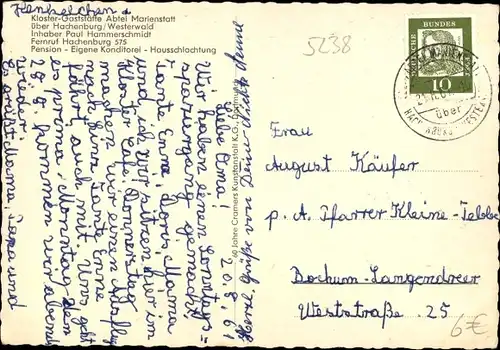 Kloster-Gaststätte Abtei Marienstatt
über Hachenburg/Westerwald
Inhaber Paul Hammerschmidt
Fernruf Hachenburg 575
Pension - Eigene Konditorei - Hausschlachtung
5238
DEUTSCHE BUNDESPOST
10
über
20.8.61
Liebe Oma!
Wir haben einen Sonntags-
spaziergang gemacht.
Tante Erna, Doris, Mama
und ich. Wir sitzen hier im
Kloster Cafe. Donnerstag
machen wir einen Ausflug
nach Tante Enne
fährt auch mit. Uns geht
es prima. Montag, den
28.8. kommen wir abends
wieder.
Es grüßt Mama und
Herzl. Grüße von Deiner Enne
60 Jahre Cramers Kunstanstalt K.G., Dortmund
Frau
August Käufer
p. A. Pfarrer Kleine-
Bochum-Langendreer
Weststraße 25
6€